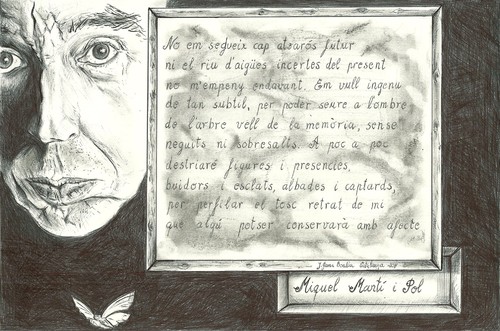 No em segueix cap atzarós futur
ni el riu d'aigües incertes del present
no m'empeny endavant. Em vull ingenu
de tan subtil, per poder seure a l'ombra
de l'arbre vell de la memòria, sense
neguits ni sobresalts. A poc a poc
destriaré figures i presències,
buidors i esclats, albades i captards,
per perfilar el tosc retrat de mi
que algú potser conservarà amb afecte
Miquel Martí i Pol